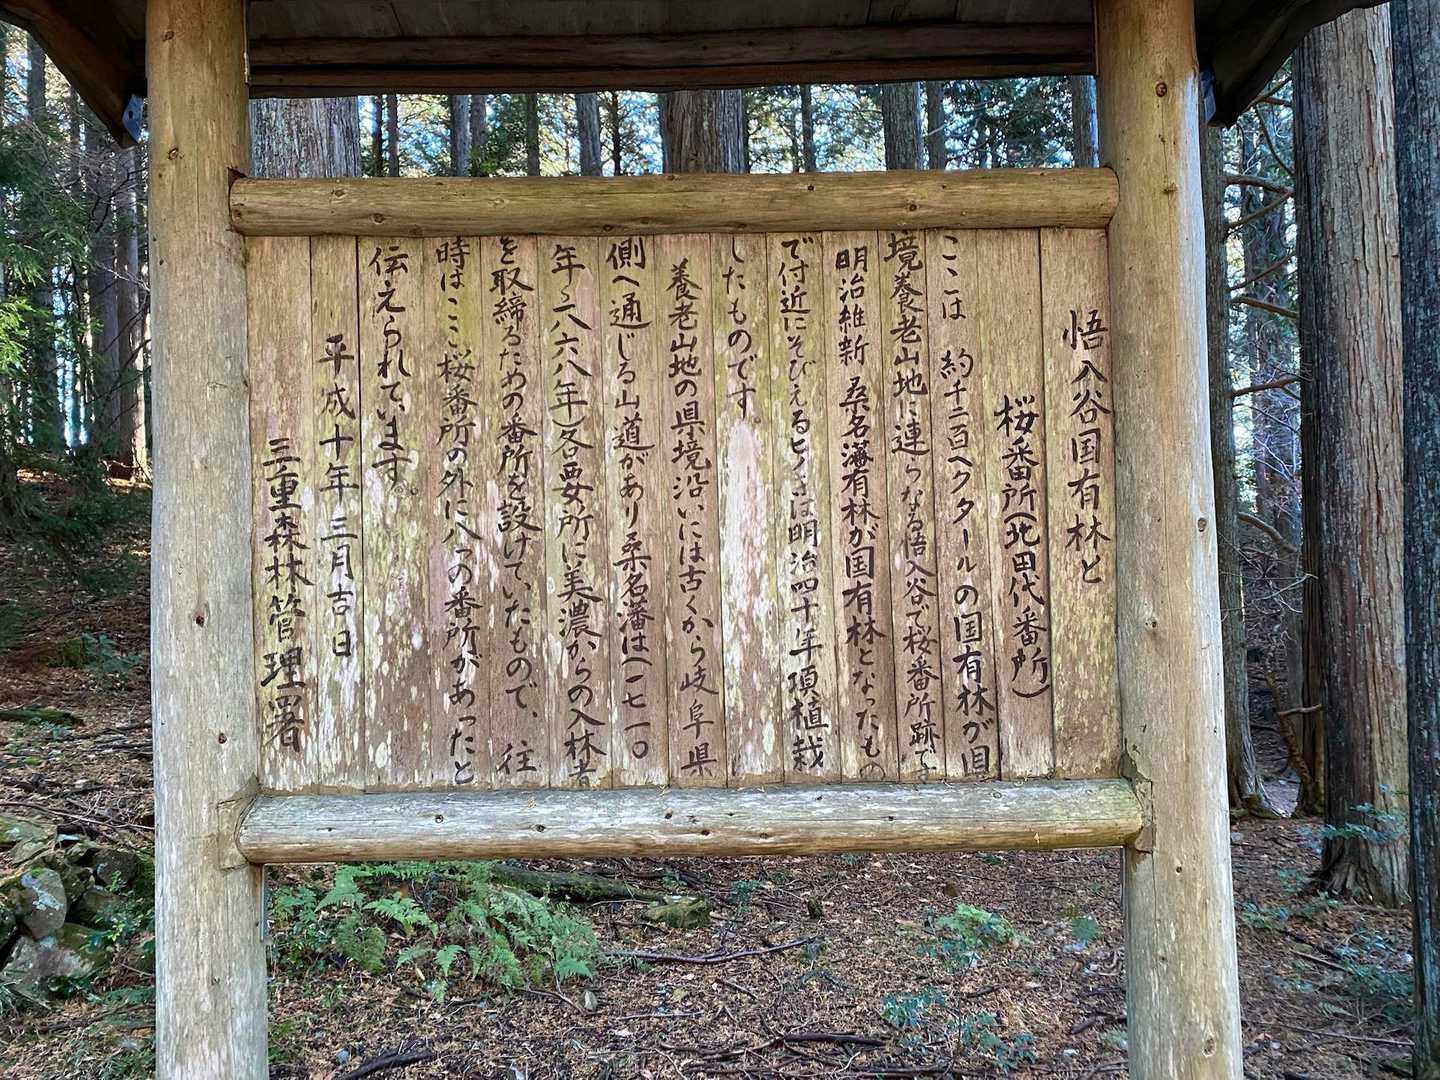 悟入谷国有林と
桜番所(北田代番所)
ここは 約千二百ヘクタールの国有林が県
境養老山地に連らなる悟入谷で桜番所跡です
明治維新 桑名藩有林が国有林となったもの
で付近にそびえるヒノキは明治四十年頃植栽
したものです。
養老山地の県境沿いには古くから岐阜県
側へ通じる山道があり桑名藩は(一七一〇
年〜一八六八年)各要所に美濃からの入林者
を取締るための番所を設けていたもので、往
時はここ桜番所の外に八つの番所があったと
伝えられています。
平成十年三月吉日
三重森林管理署